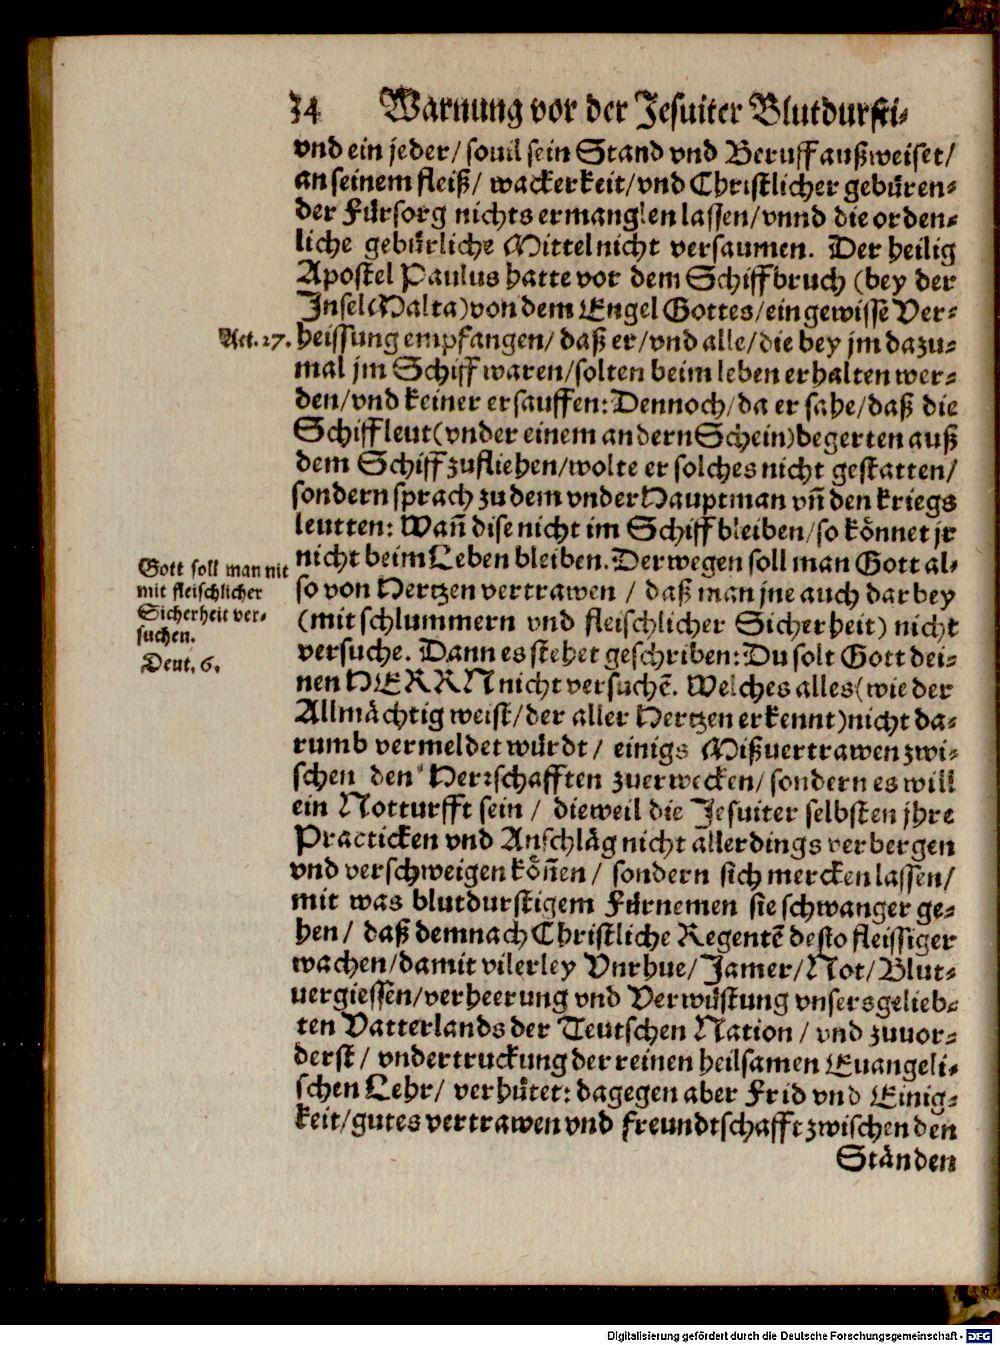 34 Warnung vor der Jesuiter Blutdursti-
vnd ein jeder/ souil sein Stand vnd Beruff außweiset/
an seinem fleiß/ wackerkeit/ vnd Christlicher gebüren-
der Fürsorg nichts ermanglen lassen/ vnnd die orden-
liche gebürliche Mittel nicht versaumen. Der heilig
Apostel Paulus hatte vor dem Schiffbruch (bey der
Insel Malta) von dem Engel Gottes/ ein gewisse Ver-
Act. 27. heissung empfangen/ daß er/ vnd alle/ die bey jm dazu-
mal jm Schiff waren/ solten beim leben erhalten wer-
den/ vnd keiner ersauffen: Dennoch/ da er sahe/ daß die
Schiffleut (vnder einem andern Schein) begerten auß
dem Schiff zufliehen/ wolte er solches nicht gestatten/
sondern sprach zu dem vnder Hauptman vñ den kriegs
leutten: Wañ dise nicht im Schiff bleiben/ so könnet jr
nicht beim Leben bleiben. Derwegen soll man Gott al-
so von Hertzen vertrawen / daß man jne auch darbey
(mit schlummern vnd fleischlicher Sicherheit) nicht
versuche. Dann es stehet geschriben: Du solt Gott dei-
nen HERRN nicht versuchẽ. Welches alles (wie der
Allmächtig weist/ der aller Hertzen erkennt) nicht da-
rumb vermeldet würdt/ einigs Mißuertrawen zwi-
schen den Herrschafften zuerwecken/ sondern es will
ein Notturfft sein / dieweil die Jesuiter selbsten jhre
Practicken vnd Anschläg nicht allerdings verbergen
vnd verschweigen köñen / sondern sich mercken lassen/
mit was blutdurstigem Fürnemen sie schwanger ge-
hen/ daß demnach Christliche Regentẽ desto fleissiger
wachen/ damit vilerley Vnrhue/ Jamer/ Not/ Blut-
uergiessen/ verheerung vnd Verwüstung vnsers gelieb-
ten Vatterlands der Teutschen Nation / vnd zuuor-
derst / vndertruckung der reinen heilsamen Euangeli-
schen Lehr/ verhütet: dagegen aber Frid vnd Einig-
keit/ gutes vertrawen vnd freundtschafft zwischen den
Ständen
Gott soll man nit
mit fleischlicher
Sicherheit ver-
suchen.
Deut. 6.
Digitalisierung gefördert durch die Deutsche Forschungsgemeinschaft - DFG